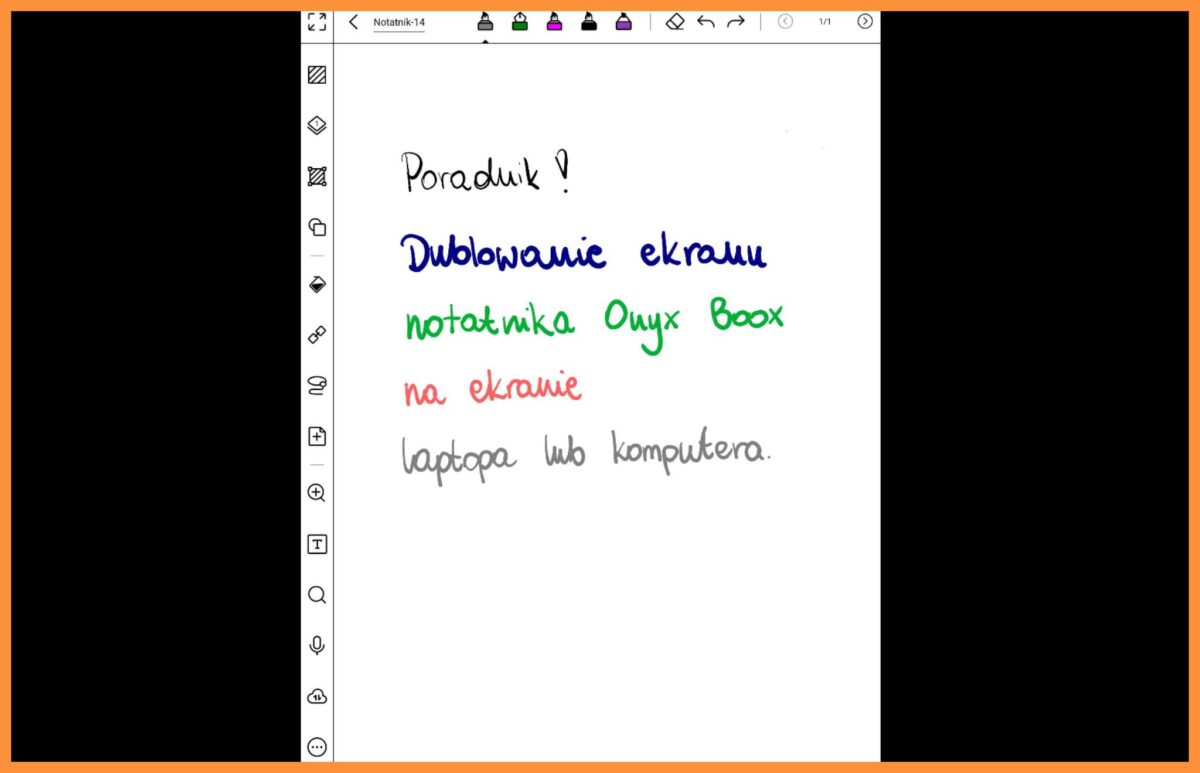 Notatnik-14
1/1
Poradnik!
Dublowanie ekranu
notatnika Onyx Boox
na ekranie
laptopa lub komputera.